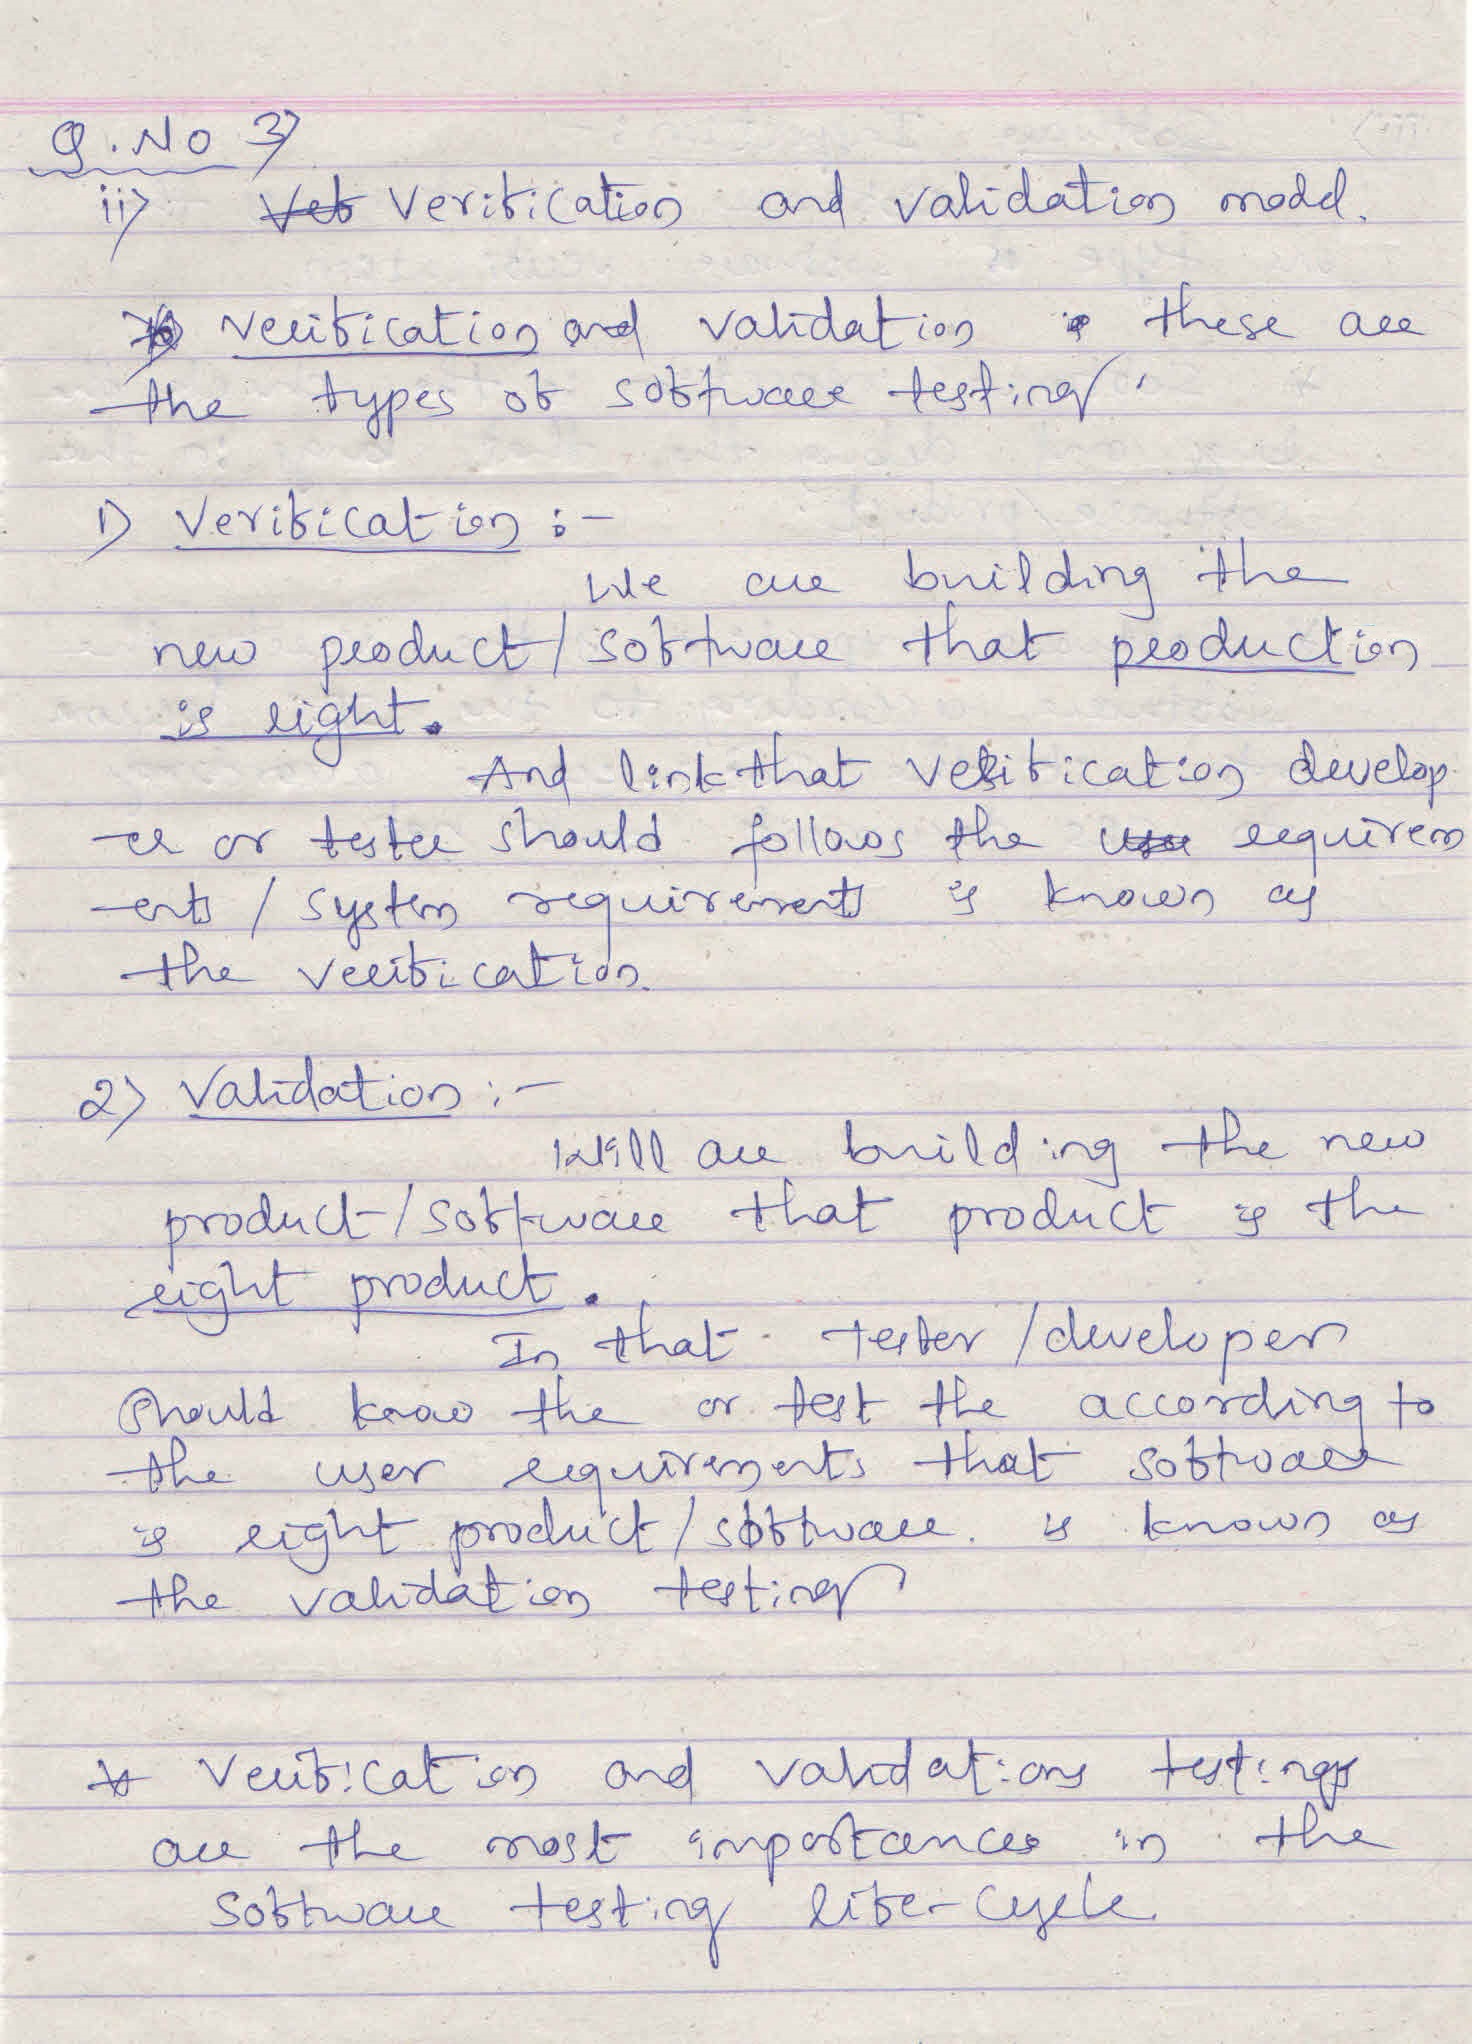 Q. No 3)
ii) Verification and validation model.
verification and validation these are
the types of software testing.
1) Verification :-
We are building the
new product/software that production
is right.
And link that verification develop
-er or tester should follows the requirem
-ents / system requirements is known as
the verification.
2) Validation :-
Will are building the new
product/software that product is the
right product.
In that tester/developer
should know the or test the according to
the user requirements that software
is right product/software. is known as
the validation testing
* Verification and validations testings
are the most importances in the
software testing life-cycle.